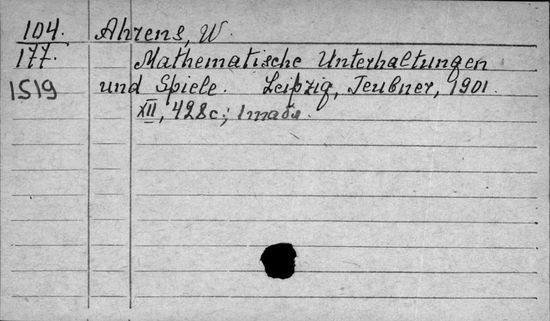 104. Ahrens, W.
177. Mathematische Unterhaltungen
1519 und Spiele. Leipzig, Teubner, 1901.
XII, 428c.;